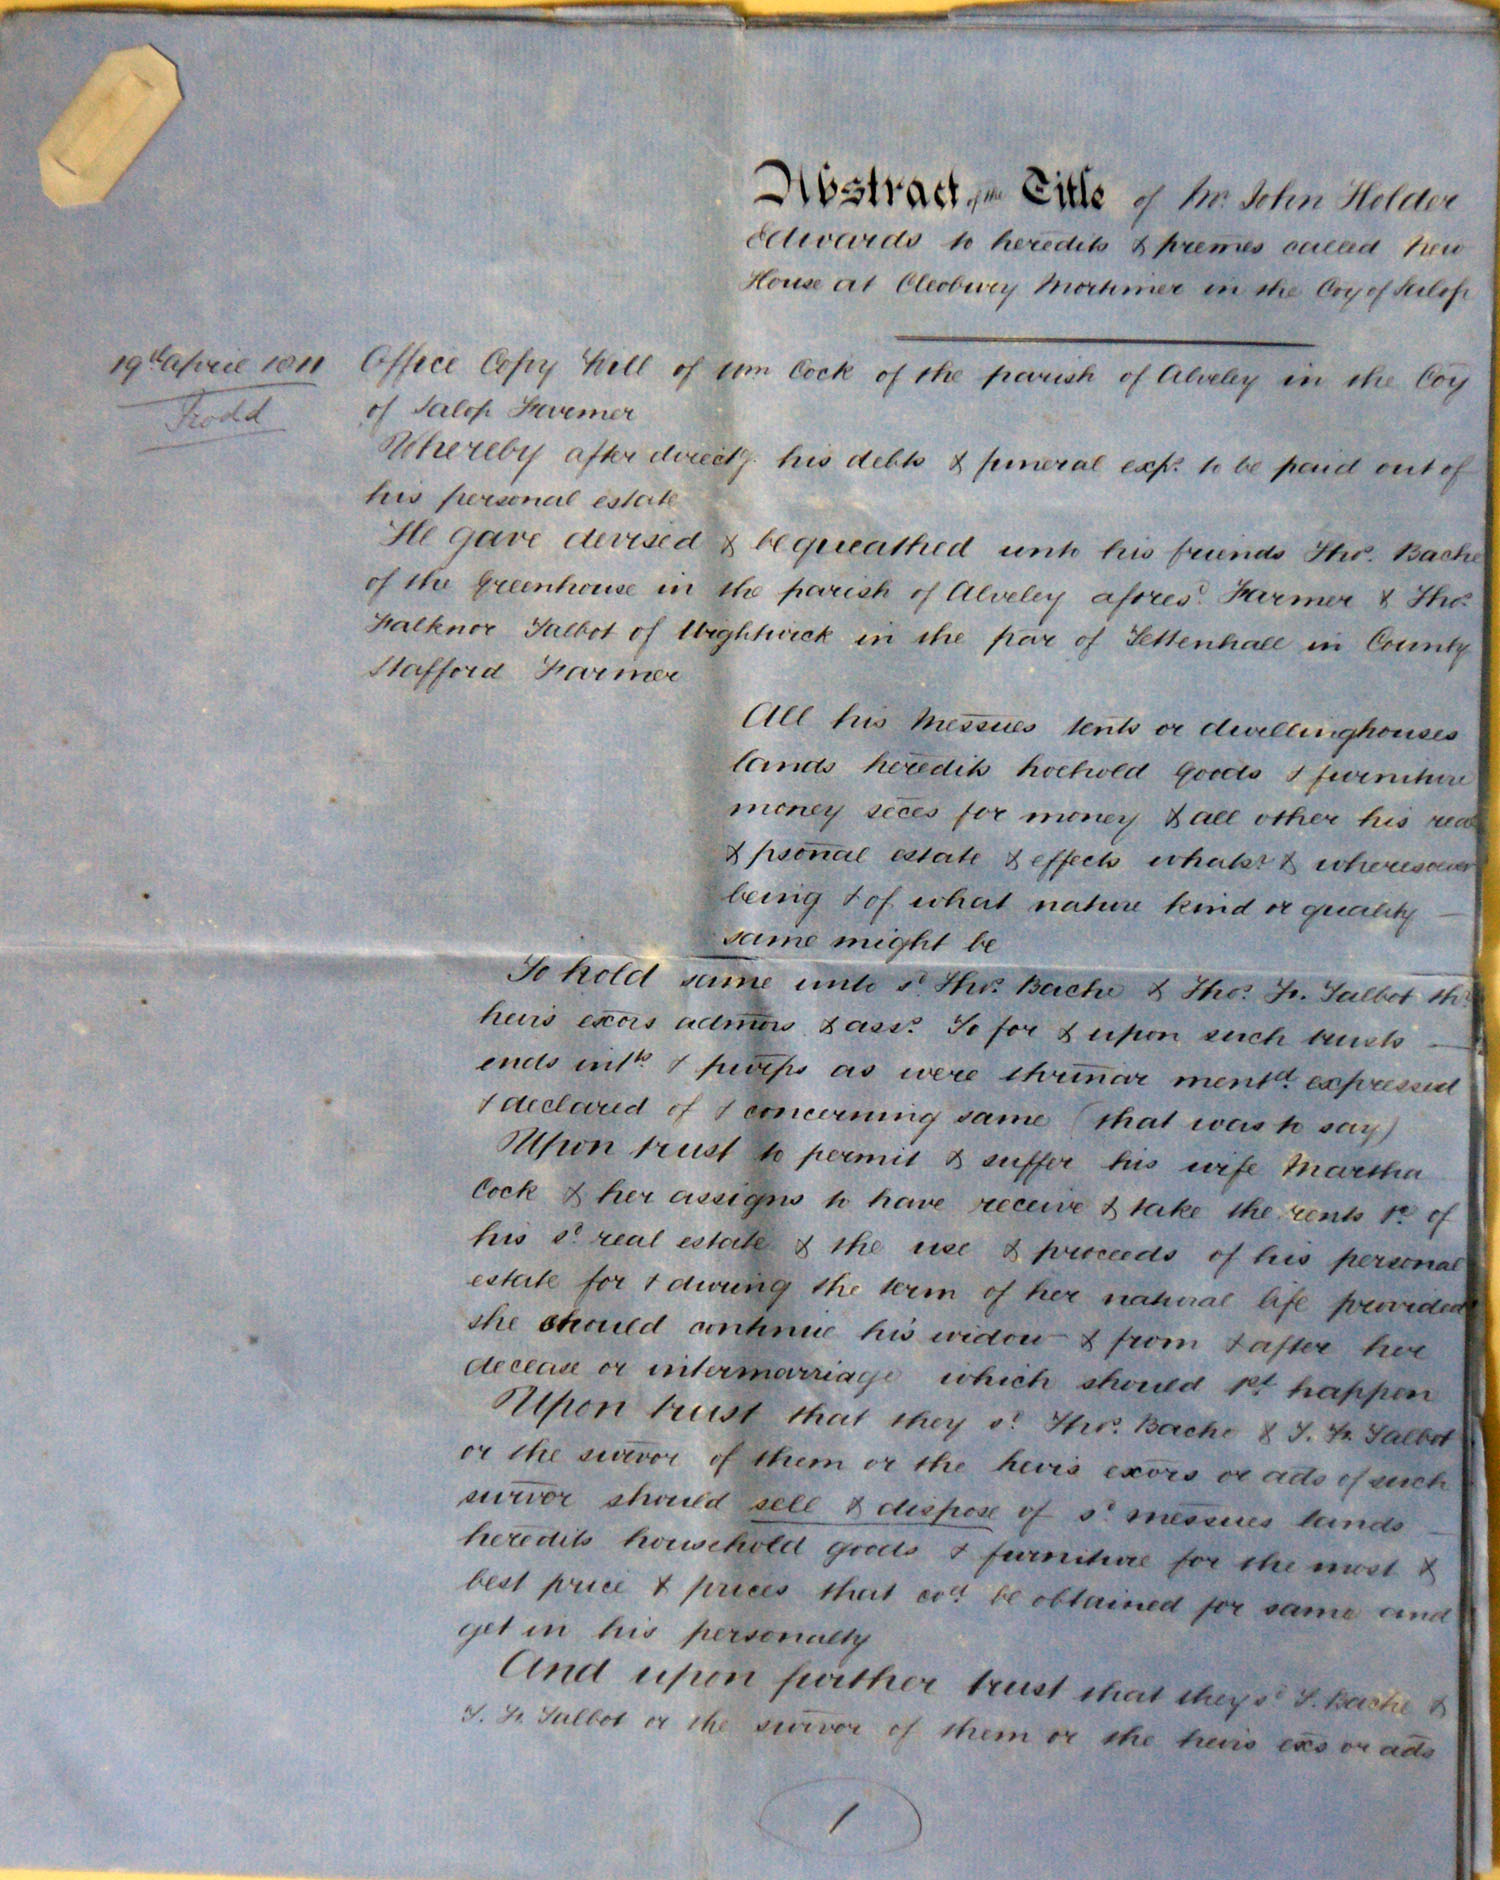 Abstract of the Title of Mr. John Holder
Edwards to heredits & premes called New
House at Cleobury Mortimer in the Coy of Salop
19th April 1811
Office Copy Will of Wm Cock of the parish of Alveley in the Coy
of Salop Farmer
Whereby after directg. his debts & funeral exps. to be paid out of
his personal estate
He gave devised & bequeathed unto his friends Thos. Bache
of the Greenhouse in the parish of Alveley aforesd. Farmer & Thos.
Falknor Talbot of Wightwick in the par of Tettenhall in County
Stafford Farmer
All his messues tents or dwellinghouses
lands heredits hoehold goods & furniture
money seces for money & all other his real
& psonal estate & effects whatsr. & wheresoever
being & of what nature kind or quality —
same might be
To hold same unto sd. Thos. Bache & Thos. Fr. Talbot thr.
heirs exors admors & asss. To for & upon such trusts —
ends intts. & purps as were thrinar mentd. expressed
& declared of & concerning same (that was to say)
Upon trust to permit & suffer his wife Martha
Cock & her assigns to have receive & take the rents &c. of
his sd. real estate & the use & proceeds of his personal
estate for & during the term of her natural life provided
she should continue his widow & from & after her
decease or intermarriage which should 1st. happen
Upon trust that they sd. Thos. Bache & T. Fr. Talbot
or the survor of them or the heirs exors or ads of such
survor should sell & dispose of sd. messues lands —
heredits household goods & furniture for the most &
best price & prices that cod. be obtained for same and
get in his personalty
And upon further trust that they sd. T. Bache &
T. Fr. Talbot or the survor of them or the heirs exs or ads
1